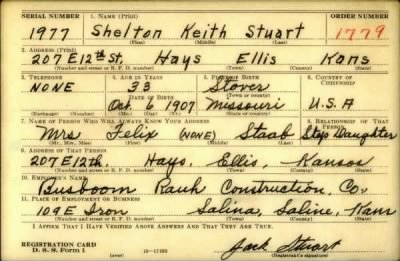 SERIAL NUMBER 1. NAME (Print) ORDER NUMBER
1977 Shelton Keith Stuart 1779
(First) (Middle) (Last)
2. ADDRESS (Print)
207 E 12th St. Hays Ellis Kans
(Number and street or R. F. D. number) (Town) (County) (State)
3. TELEPHONE 4. AGE IN YEARS 5. PLACE OF BIRTH 6. COUNTRY OF CITIZENSHIP
NONE 33 Stover
DATE OF BIRTH
Oct 6 1907 Missouri U.S.A
(Mo.) (Day) (Yr.) (State or country)
7. NAME OF PERSON WHO WILL ALWAYS KNOW YOUR ADDRESS 8. RELATIONSHIP OF THAT PERSON
Mrs Felix (NONE) Staab Step Daughter
(Mr., Mrs., Miss) (First) (Middle) (Last)
9. ADDRESS OF THAT PERSON
207 E 12th. Hays, Ellis, Kansas
(Number and street or R. F. D. number) (Town) (County) (State)
10. EMPLOYER'S NAME
Busboom Rauh Construction, Co.
11. PLACE OF EMPLOYMENT OR BUSINESS
109 E Iron Salina, Saline, Kans
(Number and street or R. F. D. number) (Town) (County) (State)
I AFFIRM THAT I HAVE VERIFIED ABOVE ANSWERS AND THAT THEY ARE TRUE.
REGISTRATION CARD
D. S. S. Form 1 (over) Jack Stuart
(Registrant's signature)